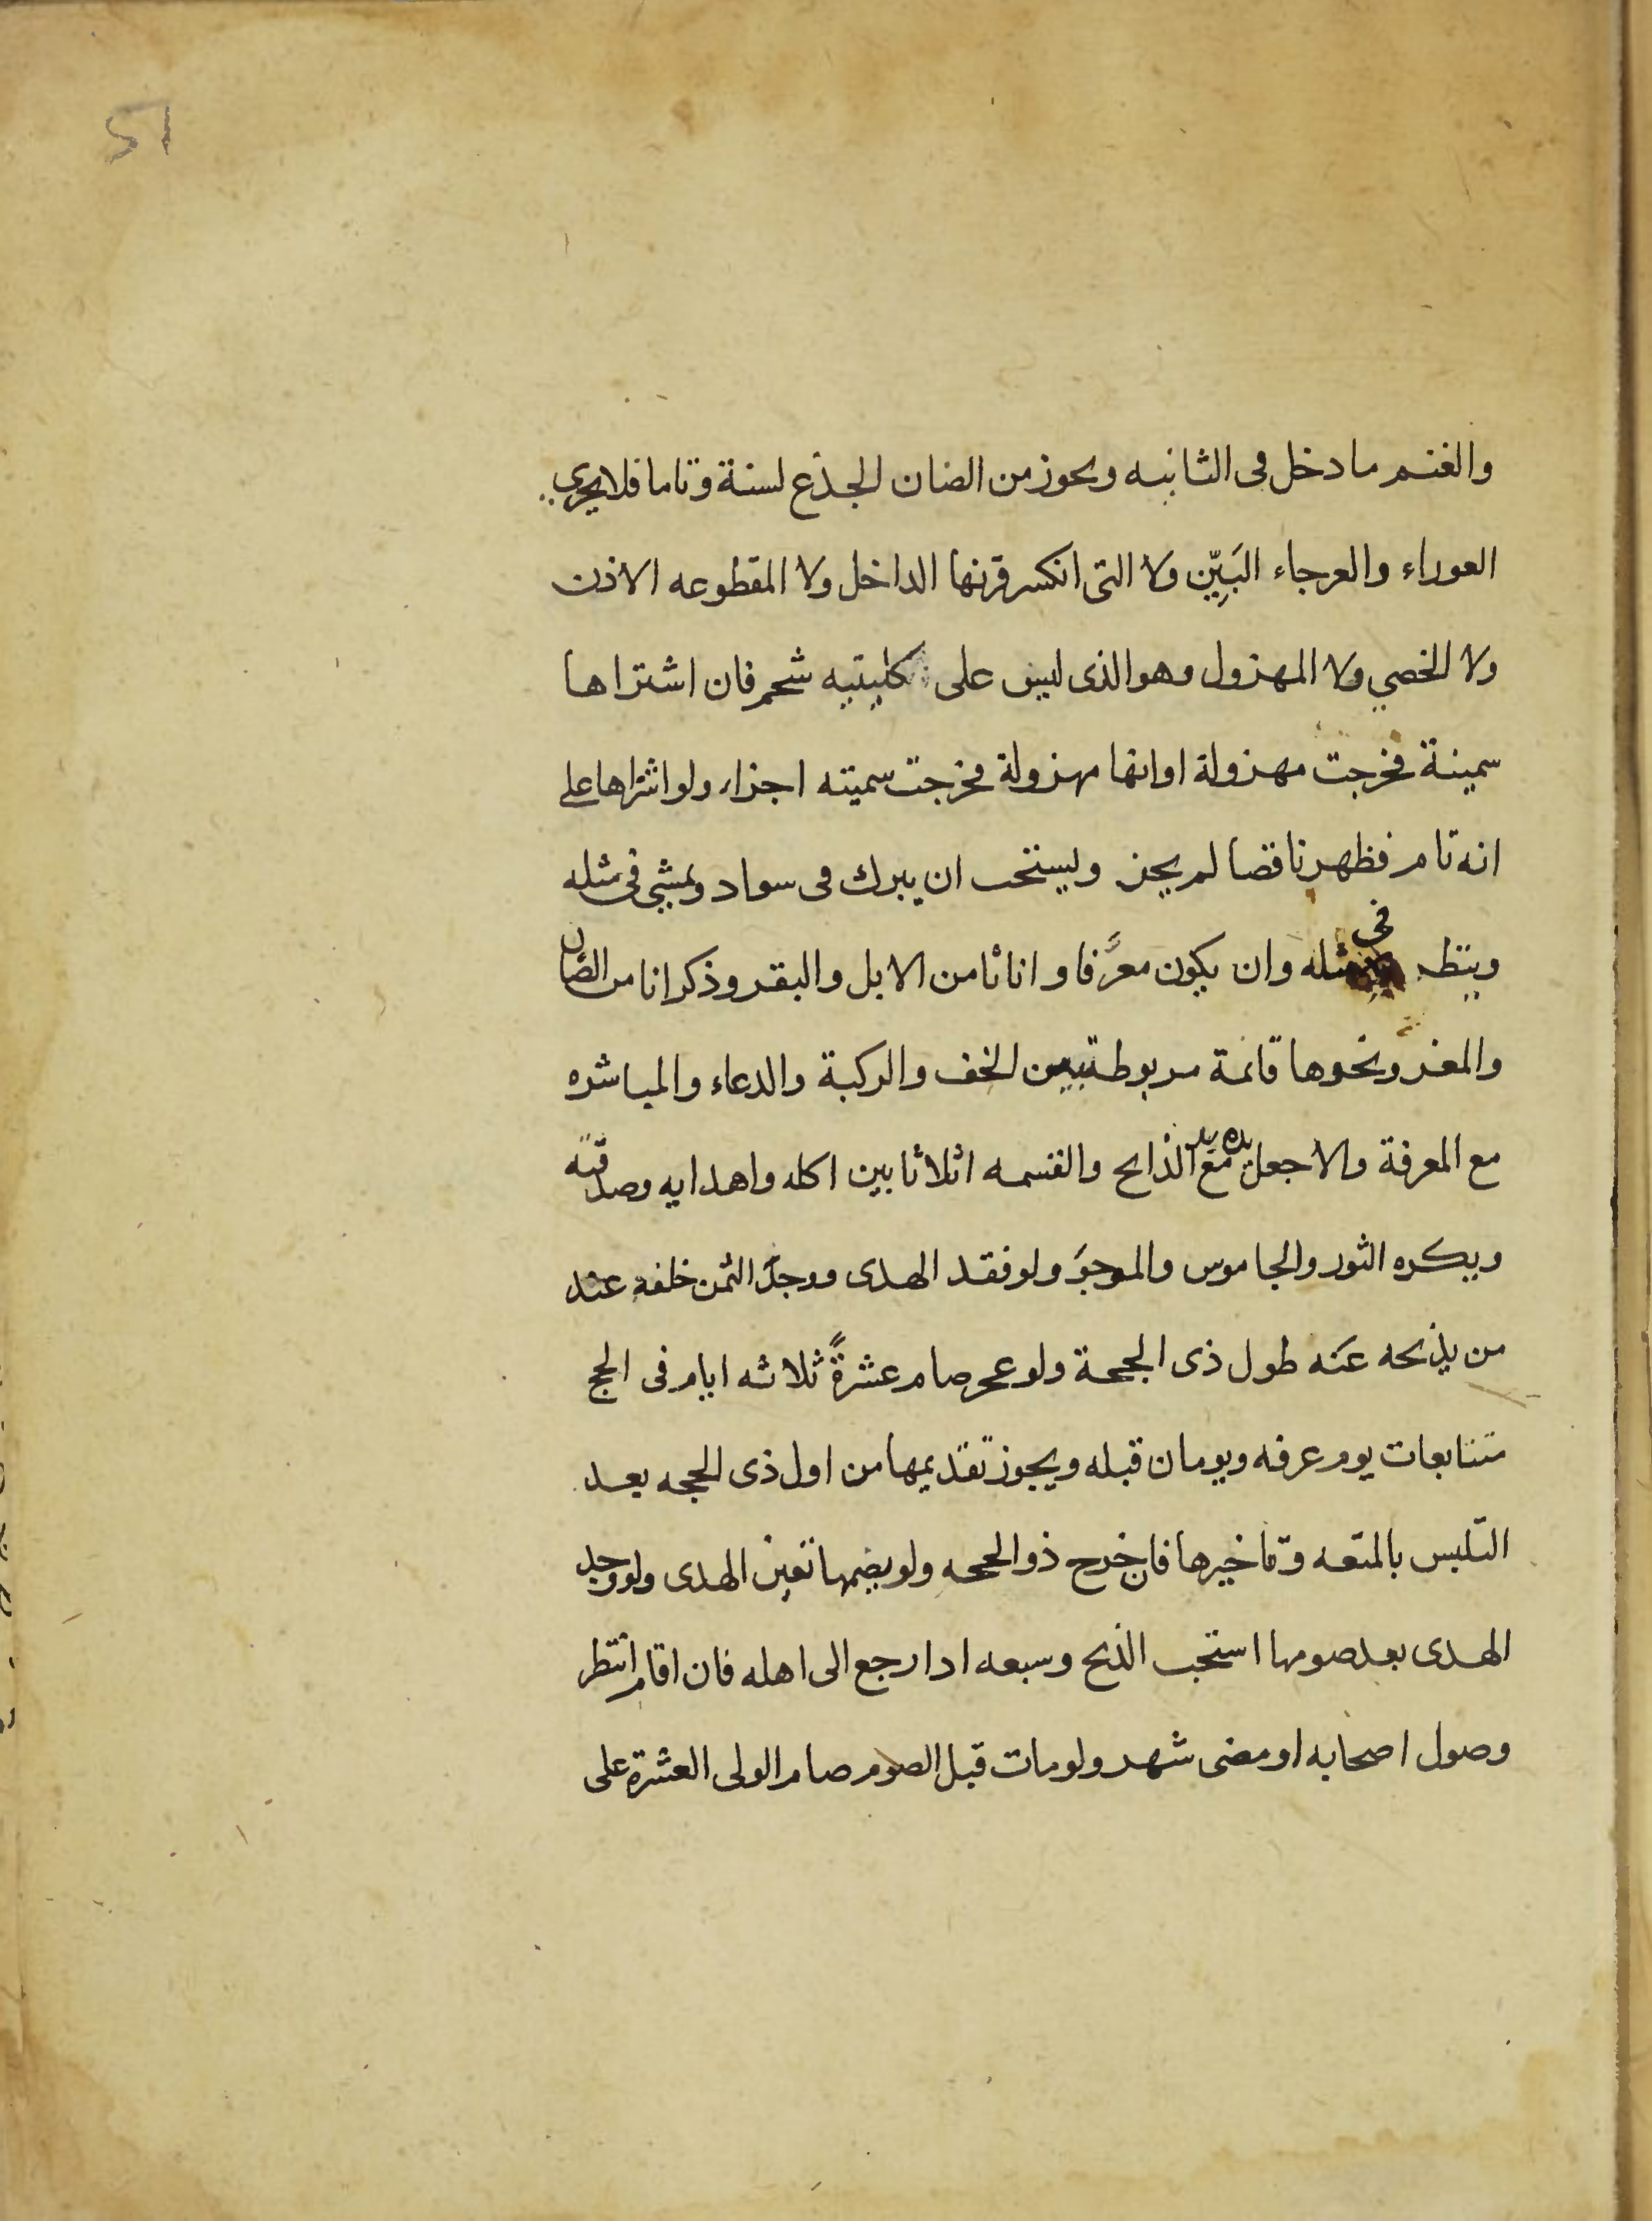 51
والغنم ما دخل فى الثانيه ويجوز من الضان الجذع لسنة وتاما فلا يجزى
العوراء والعرجاء البَيِّن ولا التى انكسر قرنها الداخل ولا المقطوعه الاذن
ولا الخصي ولا المهزول وهو الذى ليس على كليتيه شحم فان اشتراها
سمينة فخرجت مهزولة او انها مهزولة فخرجت سمينه اجزاء ولو اشتراها على
انه تام فظهر ناقصا لم يجز ويستحب ان يبرك فى سواد ويمشي فى مثله
وينظر فى مثله وان يكون معرَّفا واناثا من الابل والبقر وذكرانا من الضان
والمعز ونحوها قائمة مربوطة بين الخف والركبة والدعاء والمباشره
مع المعرفة والا جعل يده مع يد الذابح والقسمه اثلاثا بين اكله واهدايه وصدقته
ويكره الثور والجاموس والموجوَ ولو فقد الهدى ووجد الثمن خلفه عند
من يذبحه عنه طول ذى الحجة ولو عجز صام عشرةً ثلاثه ايام فى الحج
متتابعات يوم عرفه ويومان قبله ويجوز تقديمها من اول ذى الحجه بعد
التلبس بالمتعه وتاخيرها فان خرج ذو الحجه ولو يصمها تعين الهدى ولو وجد
الهدى بعد صومها استحب الذبح وسبعه اذا رجع الى اهله فان اقام انتظر
وصول اصحابه او مضى شهر ولو مات قبل الصوم صام الولى العشرة على